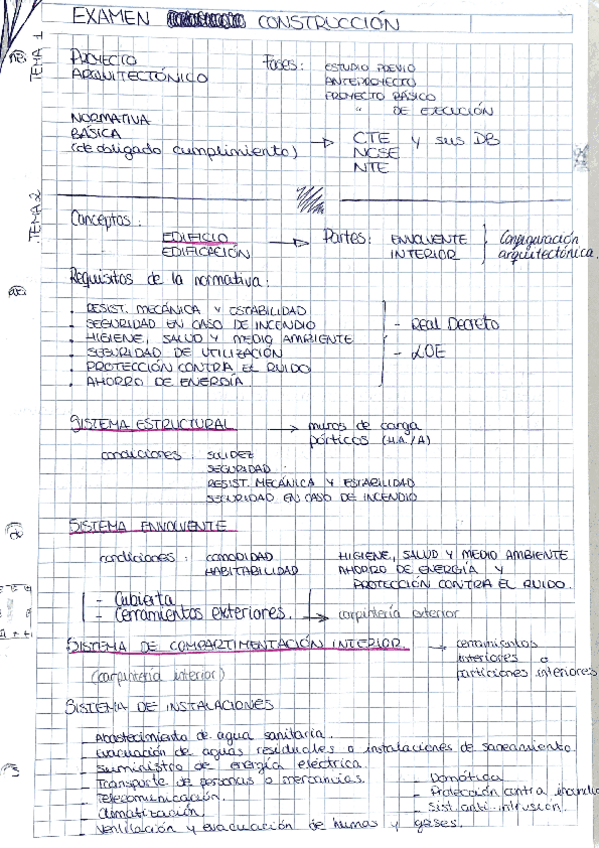 EXAMEN CONSTRUCCIÓN
TEMA 1
PROYECTO
ARQUITECTÓNICO
Fases: ESTUDIO PREVIO
ANTEPROYECTO
PROYECTO BÁSICO
" DE EJECUCIÓN
NORMATIVA
BÁSICA
(de obligado cumplimiento) → CTE y sus DB
NCSE
NTE
TEMA 2
Conceptos:
EDIFICIO → Partes: ENVOLVENTE } Configuración
EDIFICACIÓN INTERIOR arquitectónica.
Requisitos de la normativa:
. RESIST. MECÁNICA Y ESTABILIDAD
. SEGURIDAD EN CASO DE INCENDIO - Real Decreto
. HIGIENE, SALUD Y MEDIO AMBIENTE
. SEGURIDAD DE UTILIZACIÓN - LOE
. PROTECCIÓN CONTRA EL RUIDO
. AHORRO DE ENERGÍA
SISTEMA ESTRUCTURAL → muros de carga
pórticos (H.A./A)
condiciones: SOLIDEZ
SEGURIDAD
RESIST. MECÁNICA Y ESTABILIDAD
SEGURIDAD EN CASO DE INCENDIO
SISTEMA ENVOLVENTE
condiciones: COMODIDAD HIGIENE, SALUD Y MEDIO AMBIENTE
HABITABILIDAD AHORRO DE ENERGÍA Y
PROTECCIÓN CONTRA EL RUIDO.
- Cubierta
- Cerramientos exteriores. → carpintería exterior
SISTEMA DE COMPARTIMENTACIÓN INTERIOR. → cerramientos
interiores o
particiones interiores
(carpintería interior)
SISTEMA DE INSTALACIONES
- Abastecimiento de agua sanitaria.
- Evacuación de aguas residuales o instalaciones de saneamiento.
- Suministro de energía eléctrica.
- Transporte de personas o mercancías. - Domótica
- Telecomunicación. - Protección contra incendio
- Climatización. - Sist. anti-intrusión.
- Ventilación y evacuación de humos y gases.